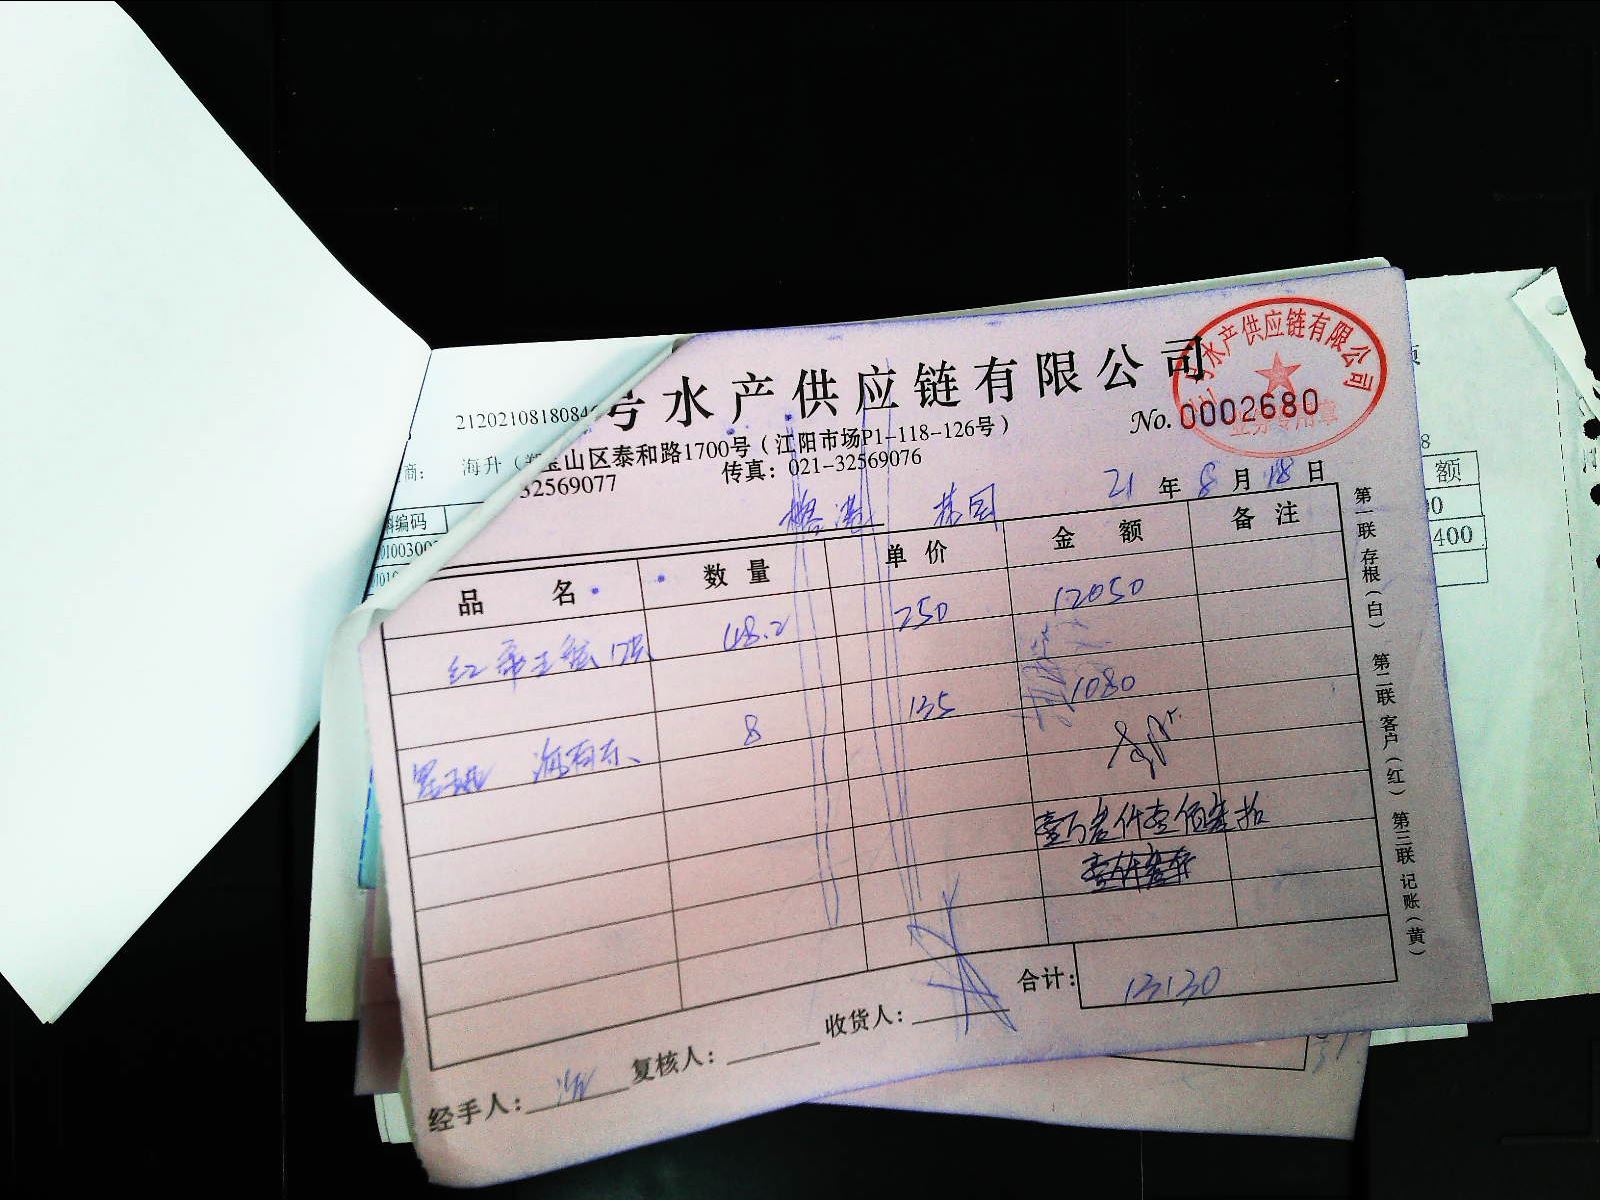 号水产供应链有限公司
水产供应链有限公司
No. 0002680
业务专用章
212021081808
宝山区泰和路1700号（江阳市场P1-118-126号）
商： 海升
32569077 传真：021-32569076
21 年 8 月 18 日
额
编码
品 名 数 量 单 价 金 额 备 注
400
红帝王蟹 17只 48.2 250 12050
8 135 1080
壹万叁仟壹佰叁拾
合计： 13130
经手人： 复核人： 收货人：
第一联 存根（白） 第二联 客户（红） 第三联 记账（黄）